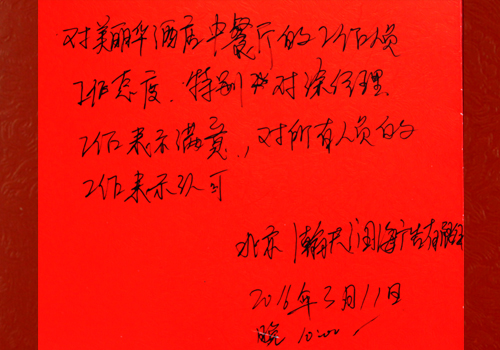 对美丽华酒店中餐厅的工作人员
工作态度.特别对涂经理
工作表示满意,对所有人员的
工作表示认可
北京瀚天润海广告有限公司
2016年3月11日
晚10:00